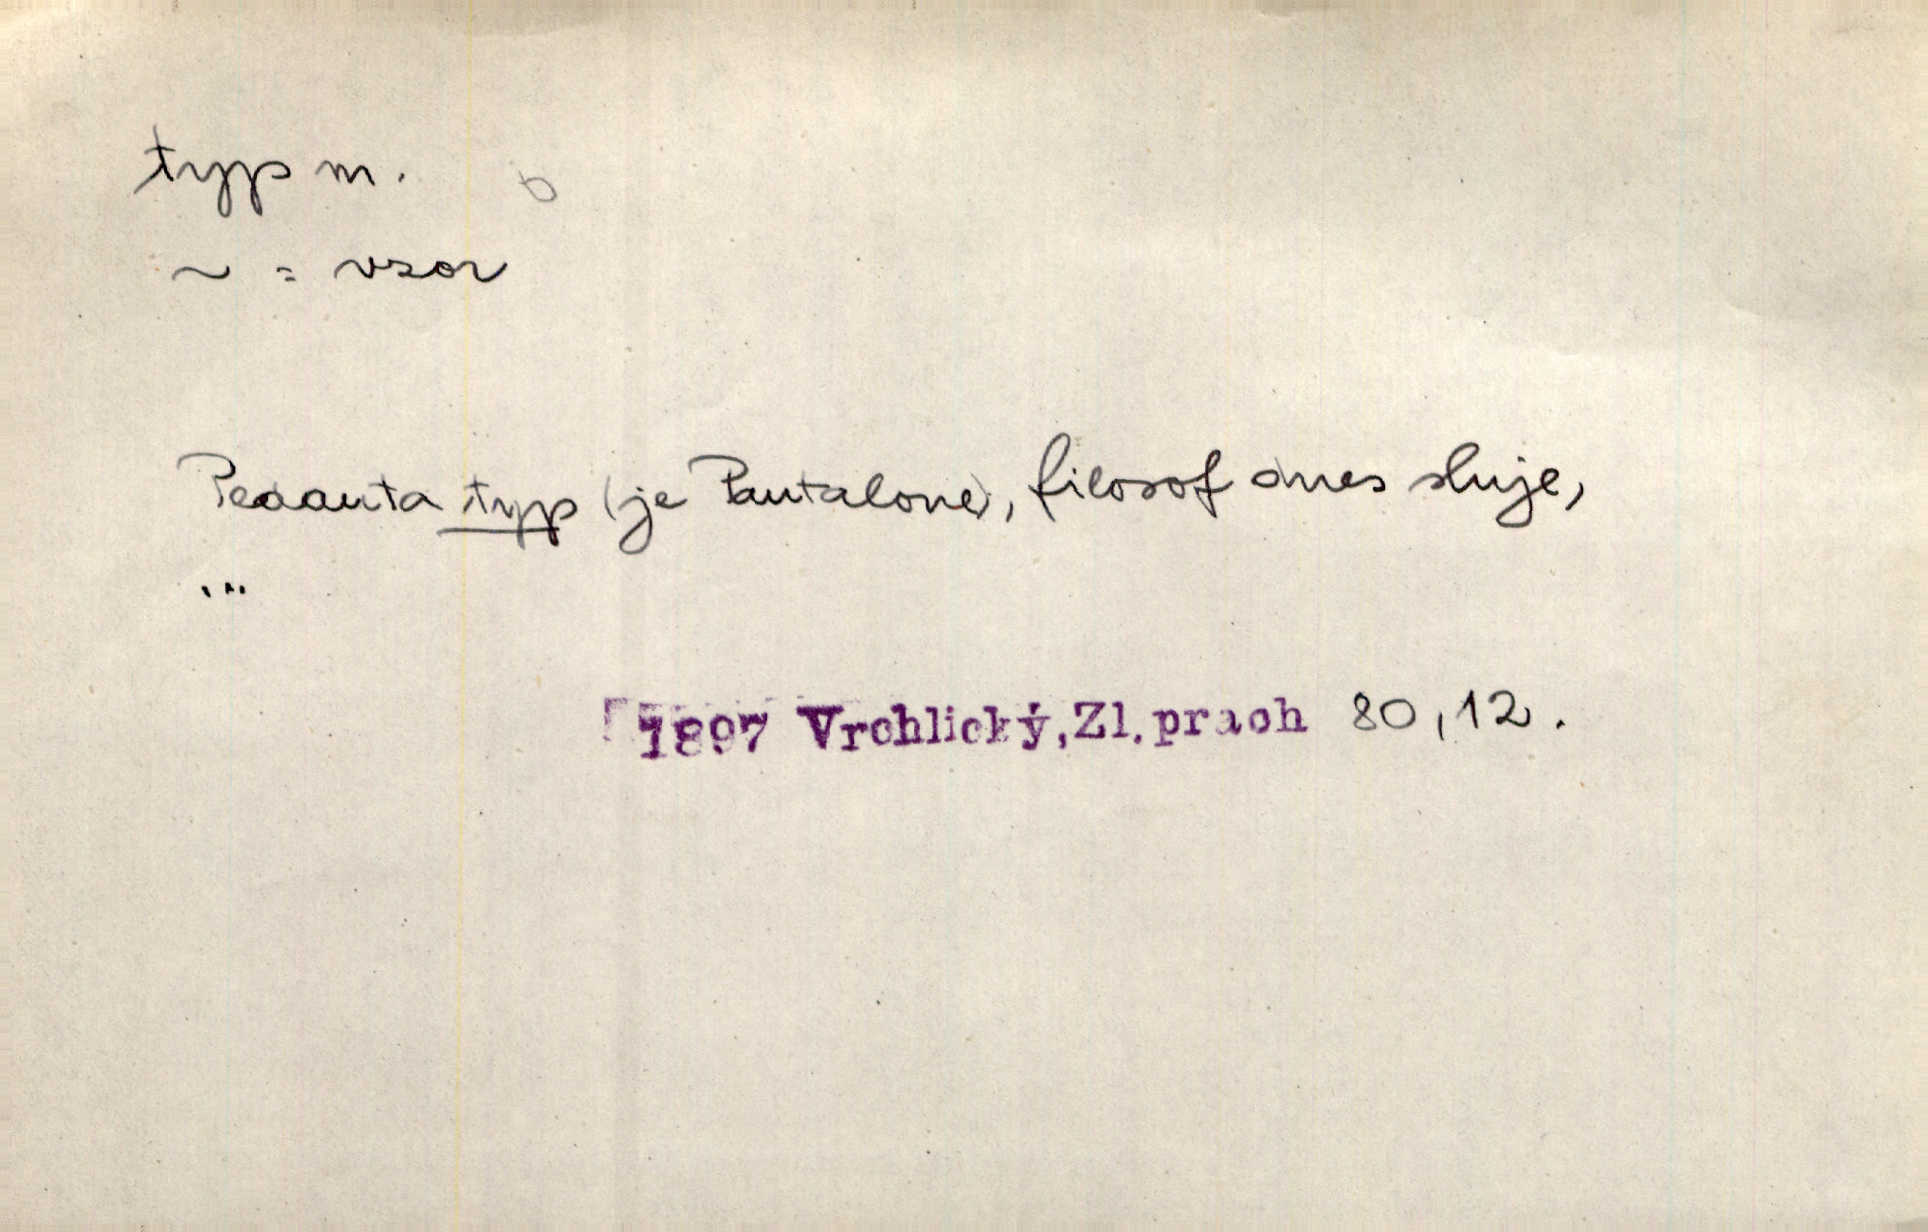 typ m. b
~ = vzor
Pedanta typ (je Pantalone), filosof dnes sluje,
...
1897 Vrchlický, Zl. prach 80, 12.